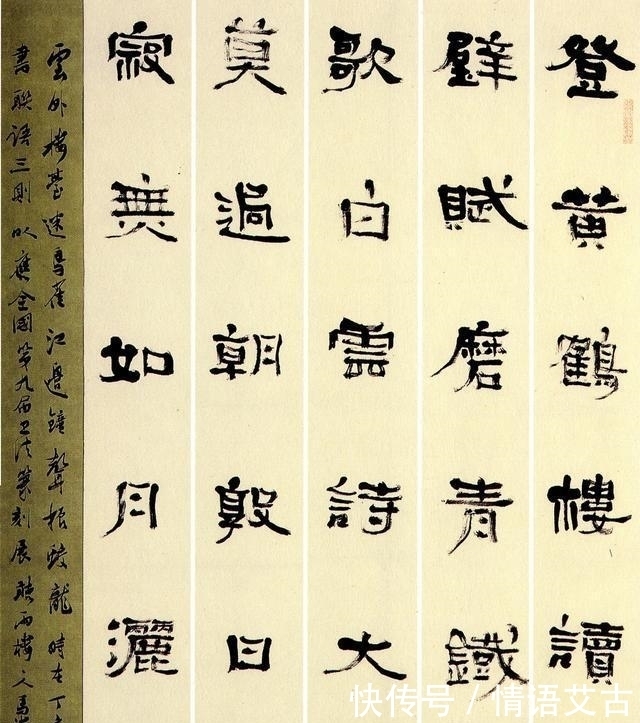 登黄鶴樓讀
壁賦磨青鐵
歌白雲詩大
莫過朝殿日
寂無如月灑
雲外樓臺迷鳥雀江邊鐘聲振蛟龍時在丁
書聯語三則以應全國第九屆書法篆刻展聽雨樓
快传号 / 情语艾古